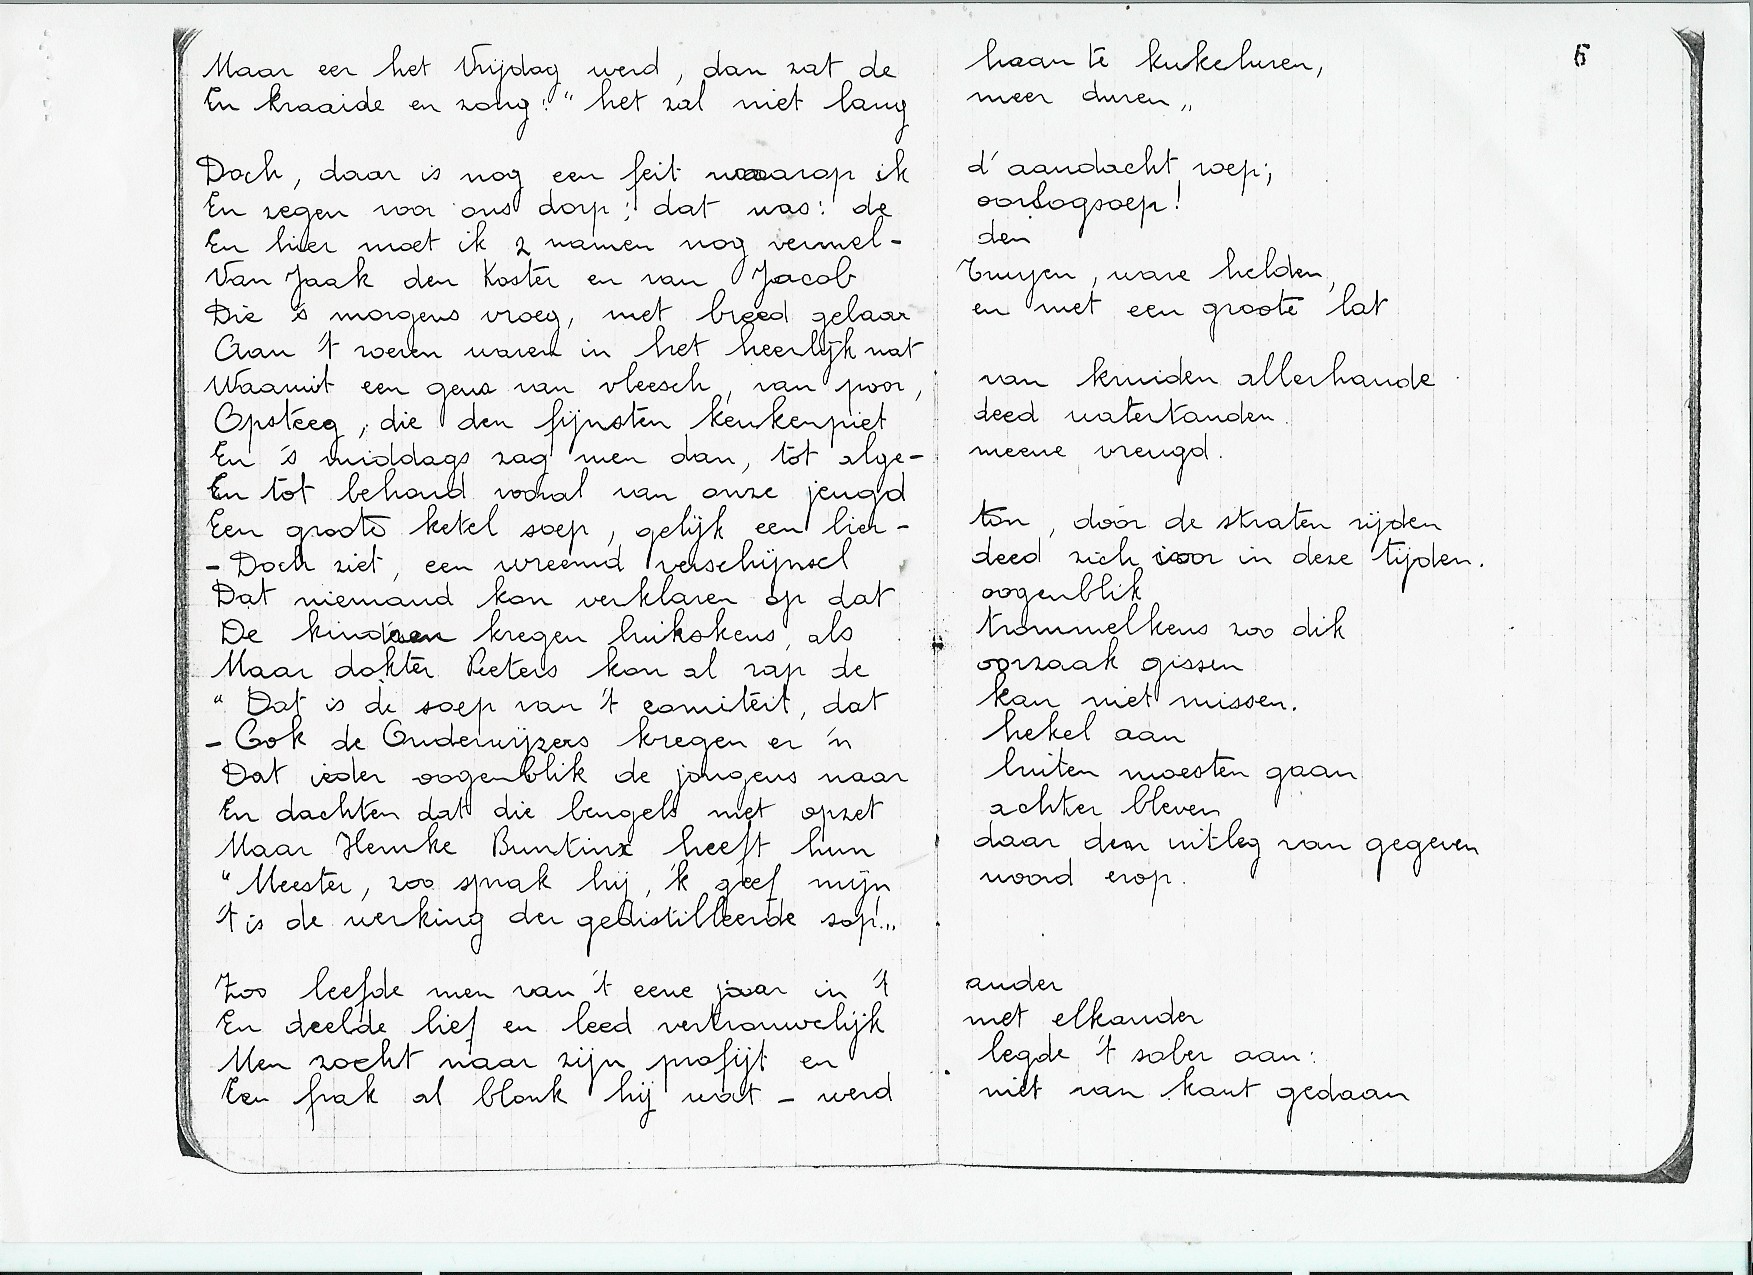 6
Maar eer het Vrijdag werd, dan zat de haan te kukeluren,
En kraaide en zong: "het zal niet lang meer duren„
Doch, daar is nog een feit waarop ik d'aandacht roep;
En zegen voor ons dorp; dat was: de oorlogsoep!
En hier moet ik 2 namen nog vermel- den
Van Jaak den Koster en van Jacob Truyen, ware helden,
Die 's morgens vroeg, met breed gelaar en met een groote lat
Aan 't roeren waren in het heerlijk nat
Waaruit een geur van vleesch, van poor, van kruiden allerhande
Opsteeg, die den fijnsten keukenpiet deed watertanden.
En 's middags zag men dan, tot alge- meene vreugd.
En tot behoud vooral van onze jeugd
Een groote ketel soep, gelijk een bier- ton, dóór de straten rijden
- Doch ziet, een vreemd verschijnsel deed zich voor in deze tijden.
Dat niemand kon verklaren op dat oogenblik
De kinderen kregen buikskens, als trommelkens zoo dik
Maar dokter Peeters kon al rap de oorzaak gissen
" Dat is de soep van 't comiteit, dat kan niet missen.
- Ook de Onderwijzers kregen er 'n hekel aan
Dat ieder oogenblik de jongens naar buiten moesten gaan
En dachten dat die bengels met opzet achter bleven
Maar Henske Buntinx heeft hun daar den uitleg van gegeven
"Meester, zoo sprak hij, 'k geef mijn woord erop.
't is de werking der gedistilleerde sop!„
Zoo leefde men van 't eene jaar in 't ander
En deelde lief en leed vertrouwelijk met elkander
Men zocht naar zijn profijt en legde 't sober aan:
Een frak al blonk hij wat - werd niet van kant gedaan